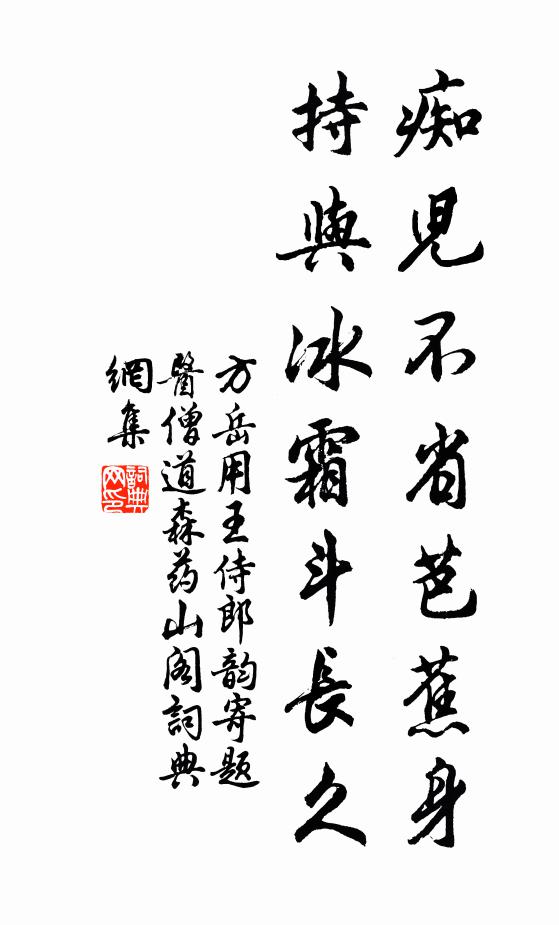 痴児不省芭蕉身
持與冰霜斗長久
方岳用王侍郎韵寄題
醫僧道森药山阁詞典
網集
詞典網印